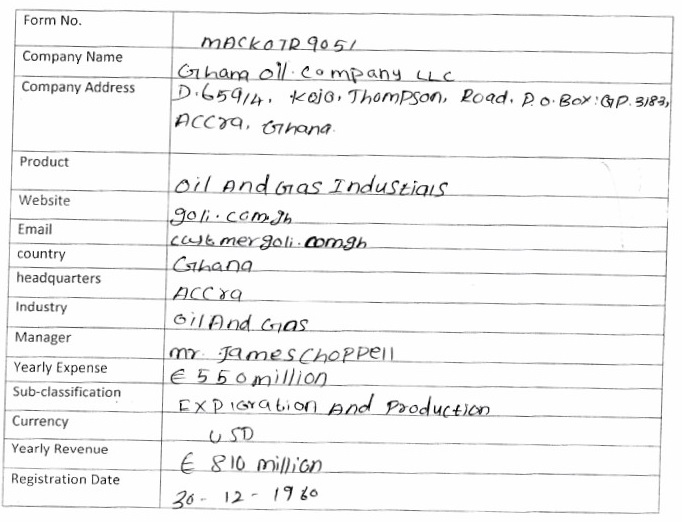 Form No.
MACKOTR9051
Company Name
Ghana oil. company LLC
Company Address
D.659/4, Kojo, Thompson, Road, P.O.Box:GP.3183,
Accra, Ghana.
Product
oil And Gas Industials
Website
goli.com.gh
Email
custmergoli.comgh
country
Ghana
headquarters
Accra
Industry
oil And Gas
Manager
mr. James Choppell
Yearly Expense
€ 550 million
Sub-classification
Exploration And Production
Currency
USD
Yearly Revenue
€ 810 million
Registration Date
30 - 12 - 1960